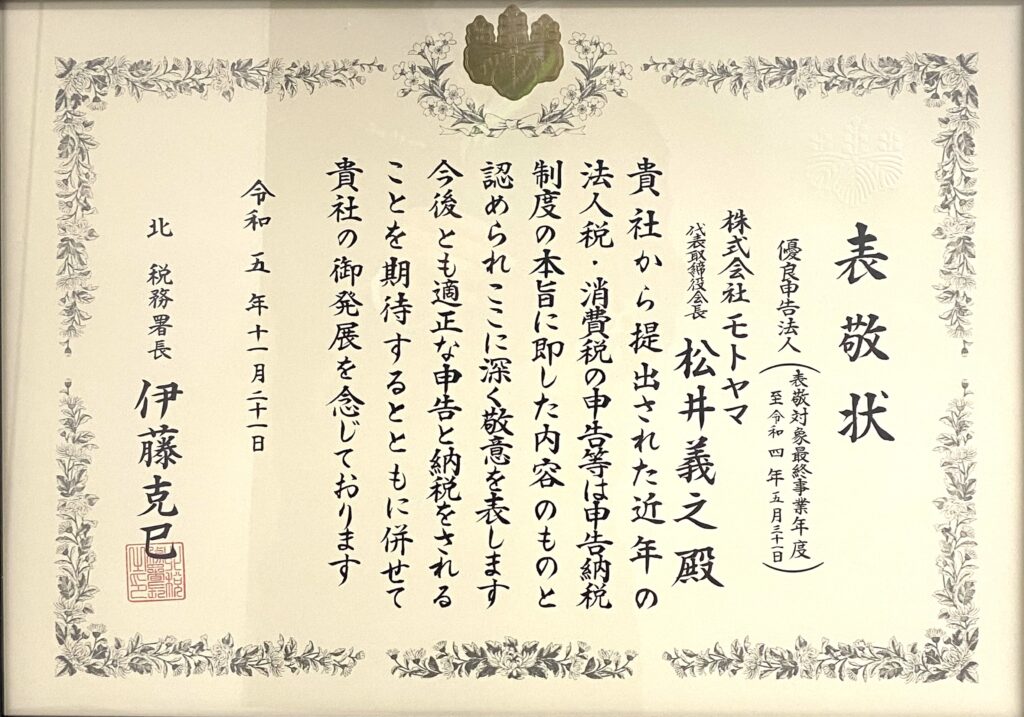 表敬状
優良申告法人
（表敬対象最終事業年度
至令和四年五月三十一日）
株式会社モトヤマ
代表取締役会長 松井義之殿
貴社から提出された近年の
法人税・消費税の申告等は申告納税
制度の本旨に即した内容のものと
認められここに深く敬意を表します
今後とも適正な申告と納税をされる
ことを期待するとともに併せて
貴社の御発展を念じております
令和五年十一月二十一日
北 税務署長 伊藤克巳